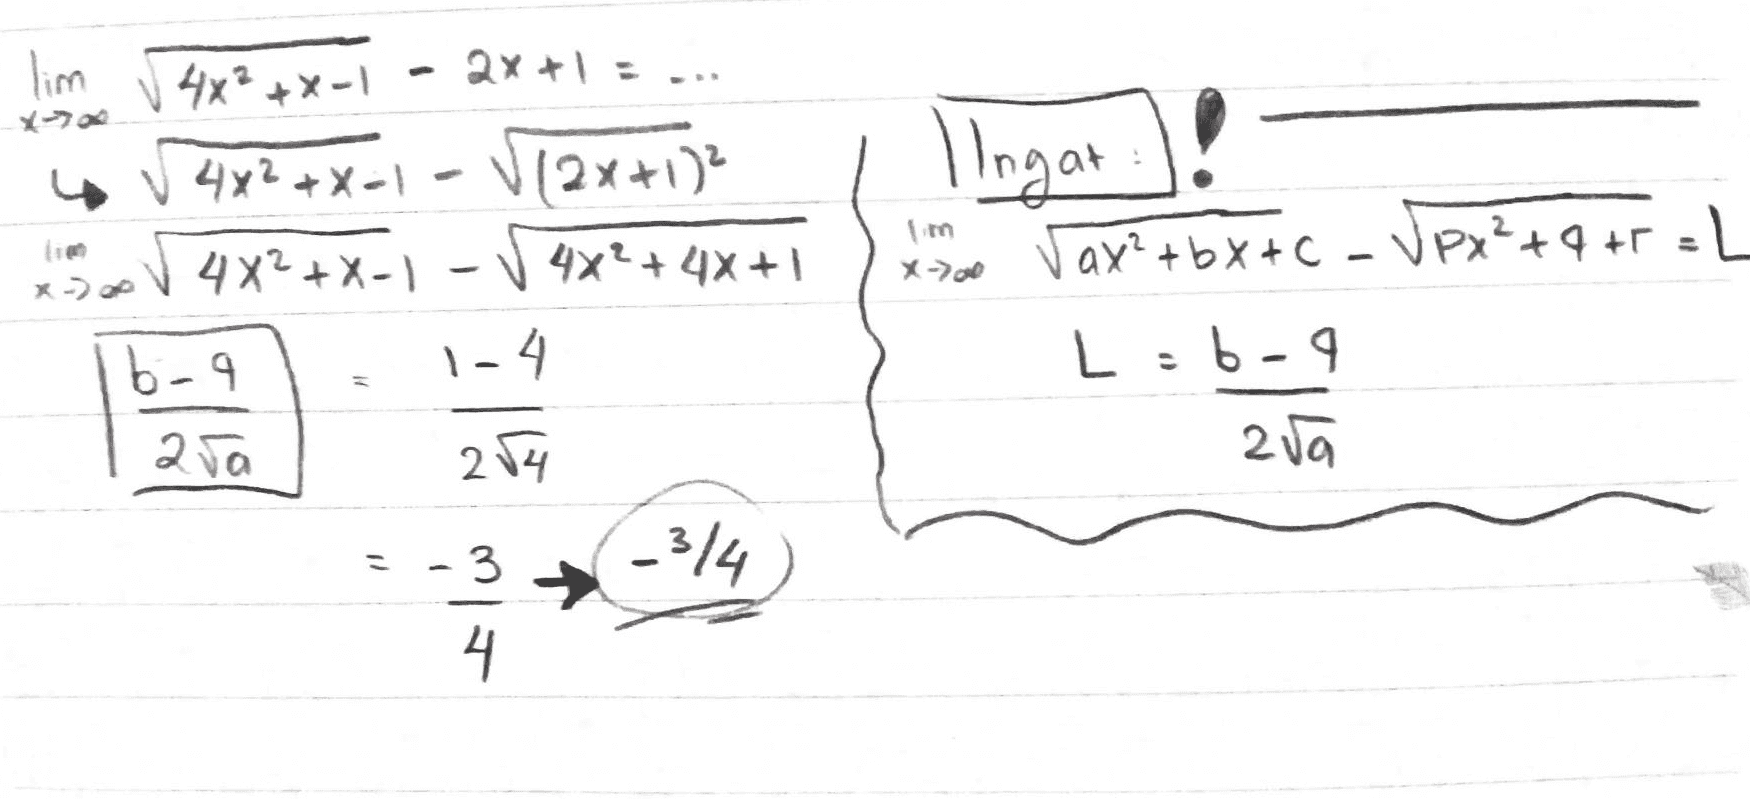 lim x→∞ √(4x²+x-1) - 2x+1 = ...
↳ √(4x²+x-1) - √((2x+1)²)
lim x→∞ √(4x²+x-1) - √(4x²+4x+1)
b-q / 2√a = 1-4 / 2√4
= -3/4 → -3/4
Ingat : !
lim x→∞ √(ax²+bx+c) - √(px²+q+r) = L
L = b-q / 2√a